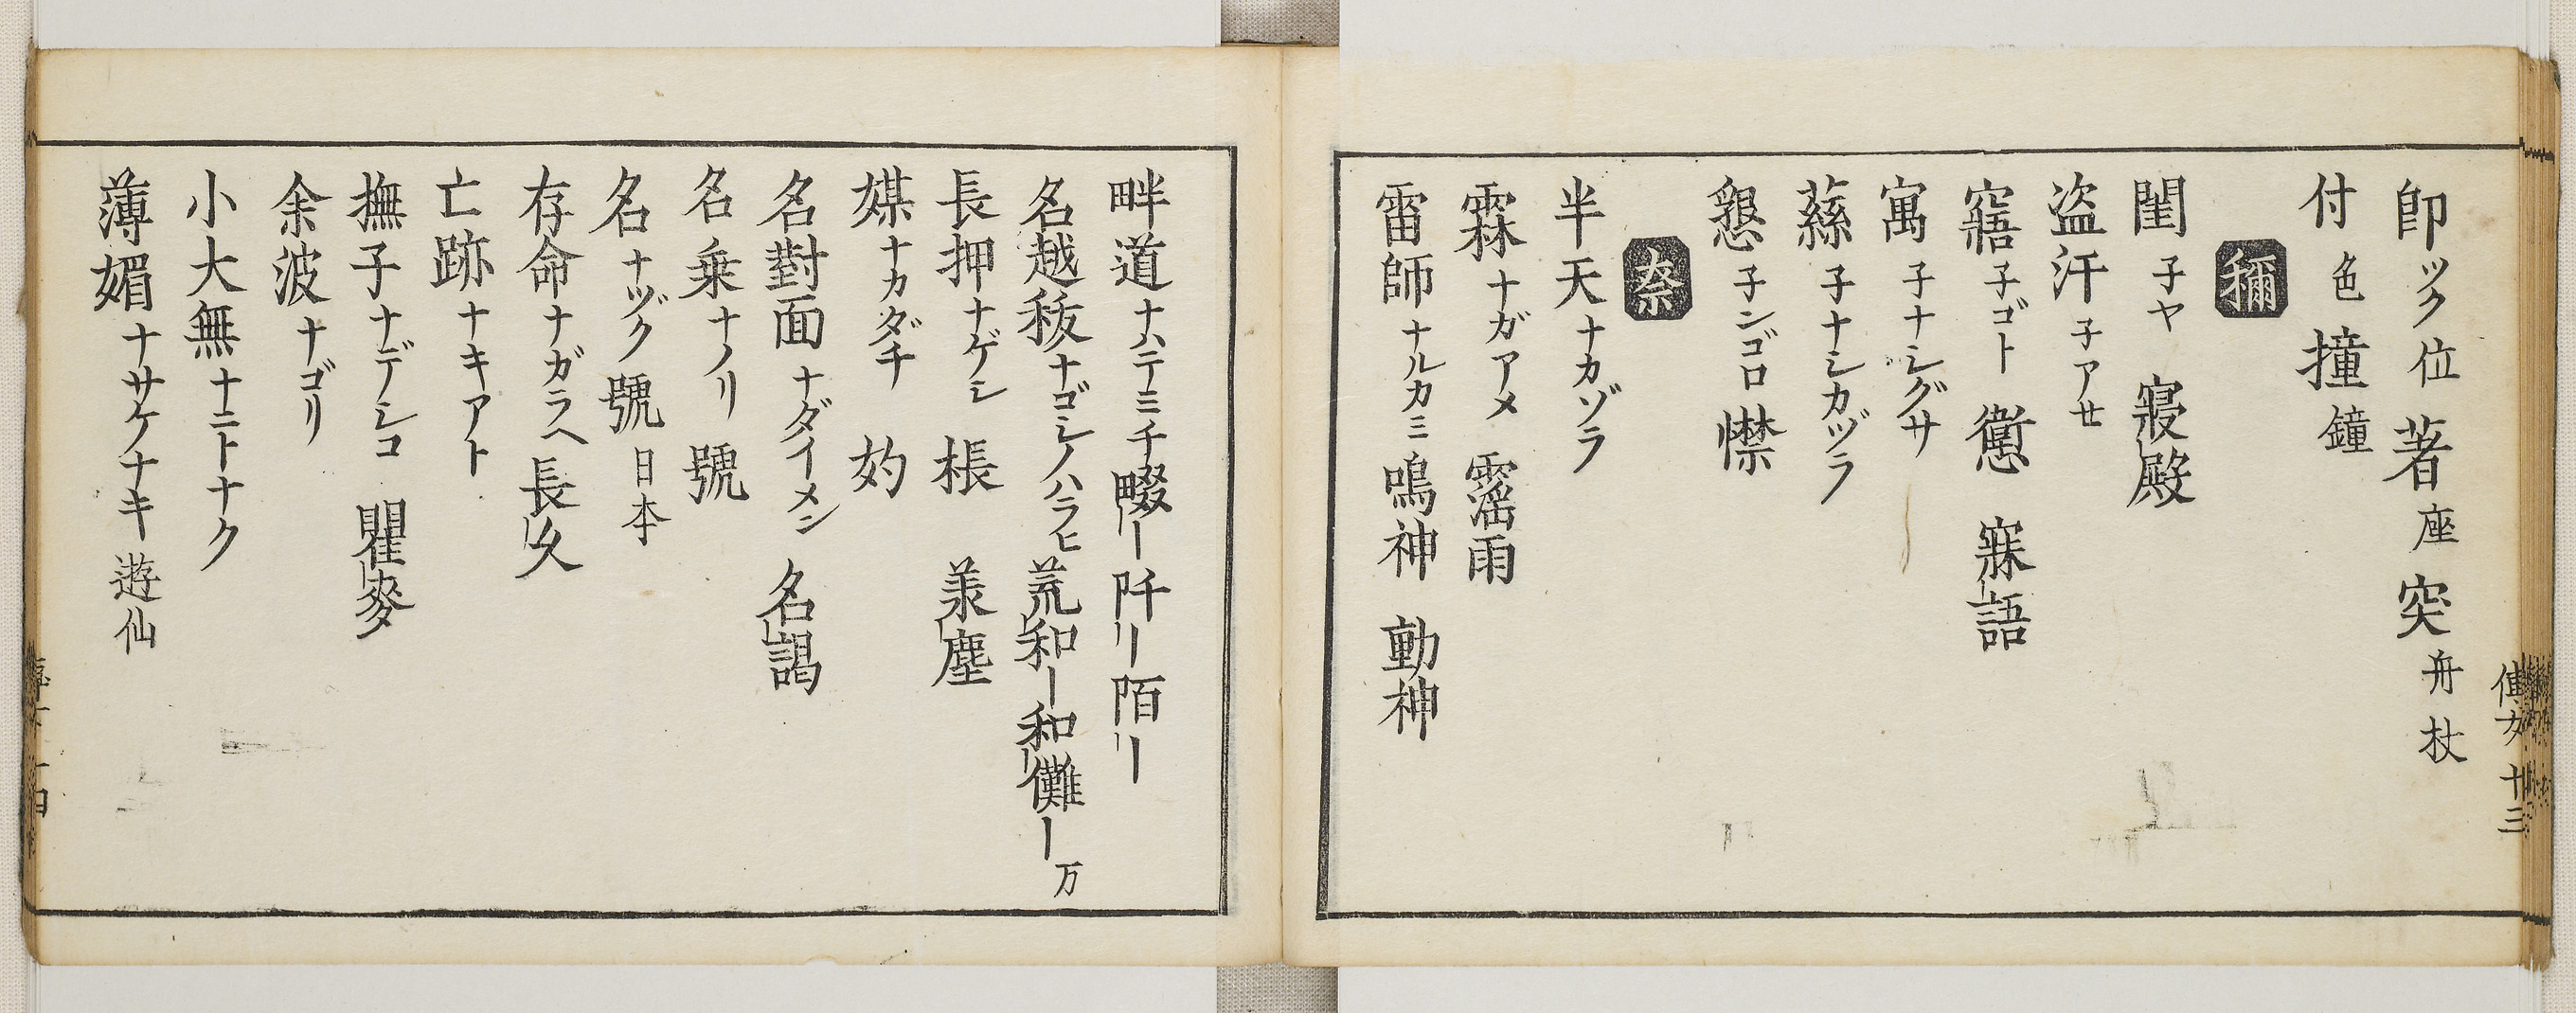 卽ツク位 著座 突舟杖
付色 撞鐘
稱
閨子ヤ 寢殿
盗汗子アセ
寤子ゴト 寱 寐語
寓子ナシグサ
蕬子ナシカヅラ
懇子ンゴロ 懍
奈
半天ナカゾラ
霖ナガアメ 霪雨
雷師ナルカミ 鳴神 動神
傳女 十三
畔道ナハテミチ 畷ー 阡ー 陌ー
名越秡ナゴシノハラヒ 荒和ー 和儺ー 万
長押ナゲシ 棖 羕塵
媒ナカダチ 妁
名對面ナダイメン 名謁
名乗ナノリ 號
名ナヅク 號日本
存命ナガラヘ 長久
亡跡ナキアト
撫子ナデシコ 瞿麥
余波ナゴリ
小大無ナニトナク
薄媚ナサケノナキ 遊仙